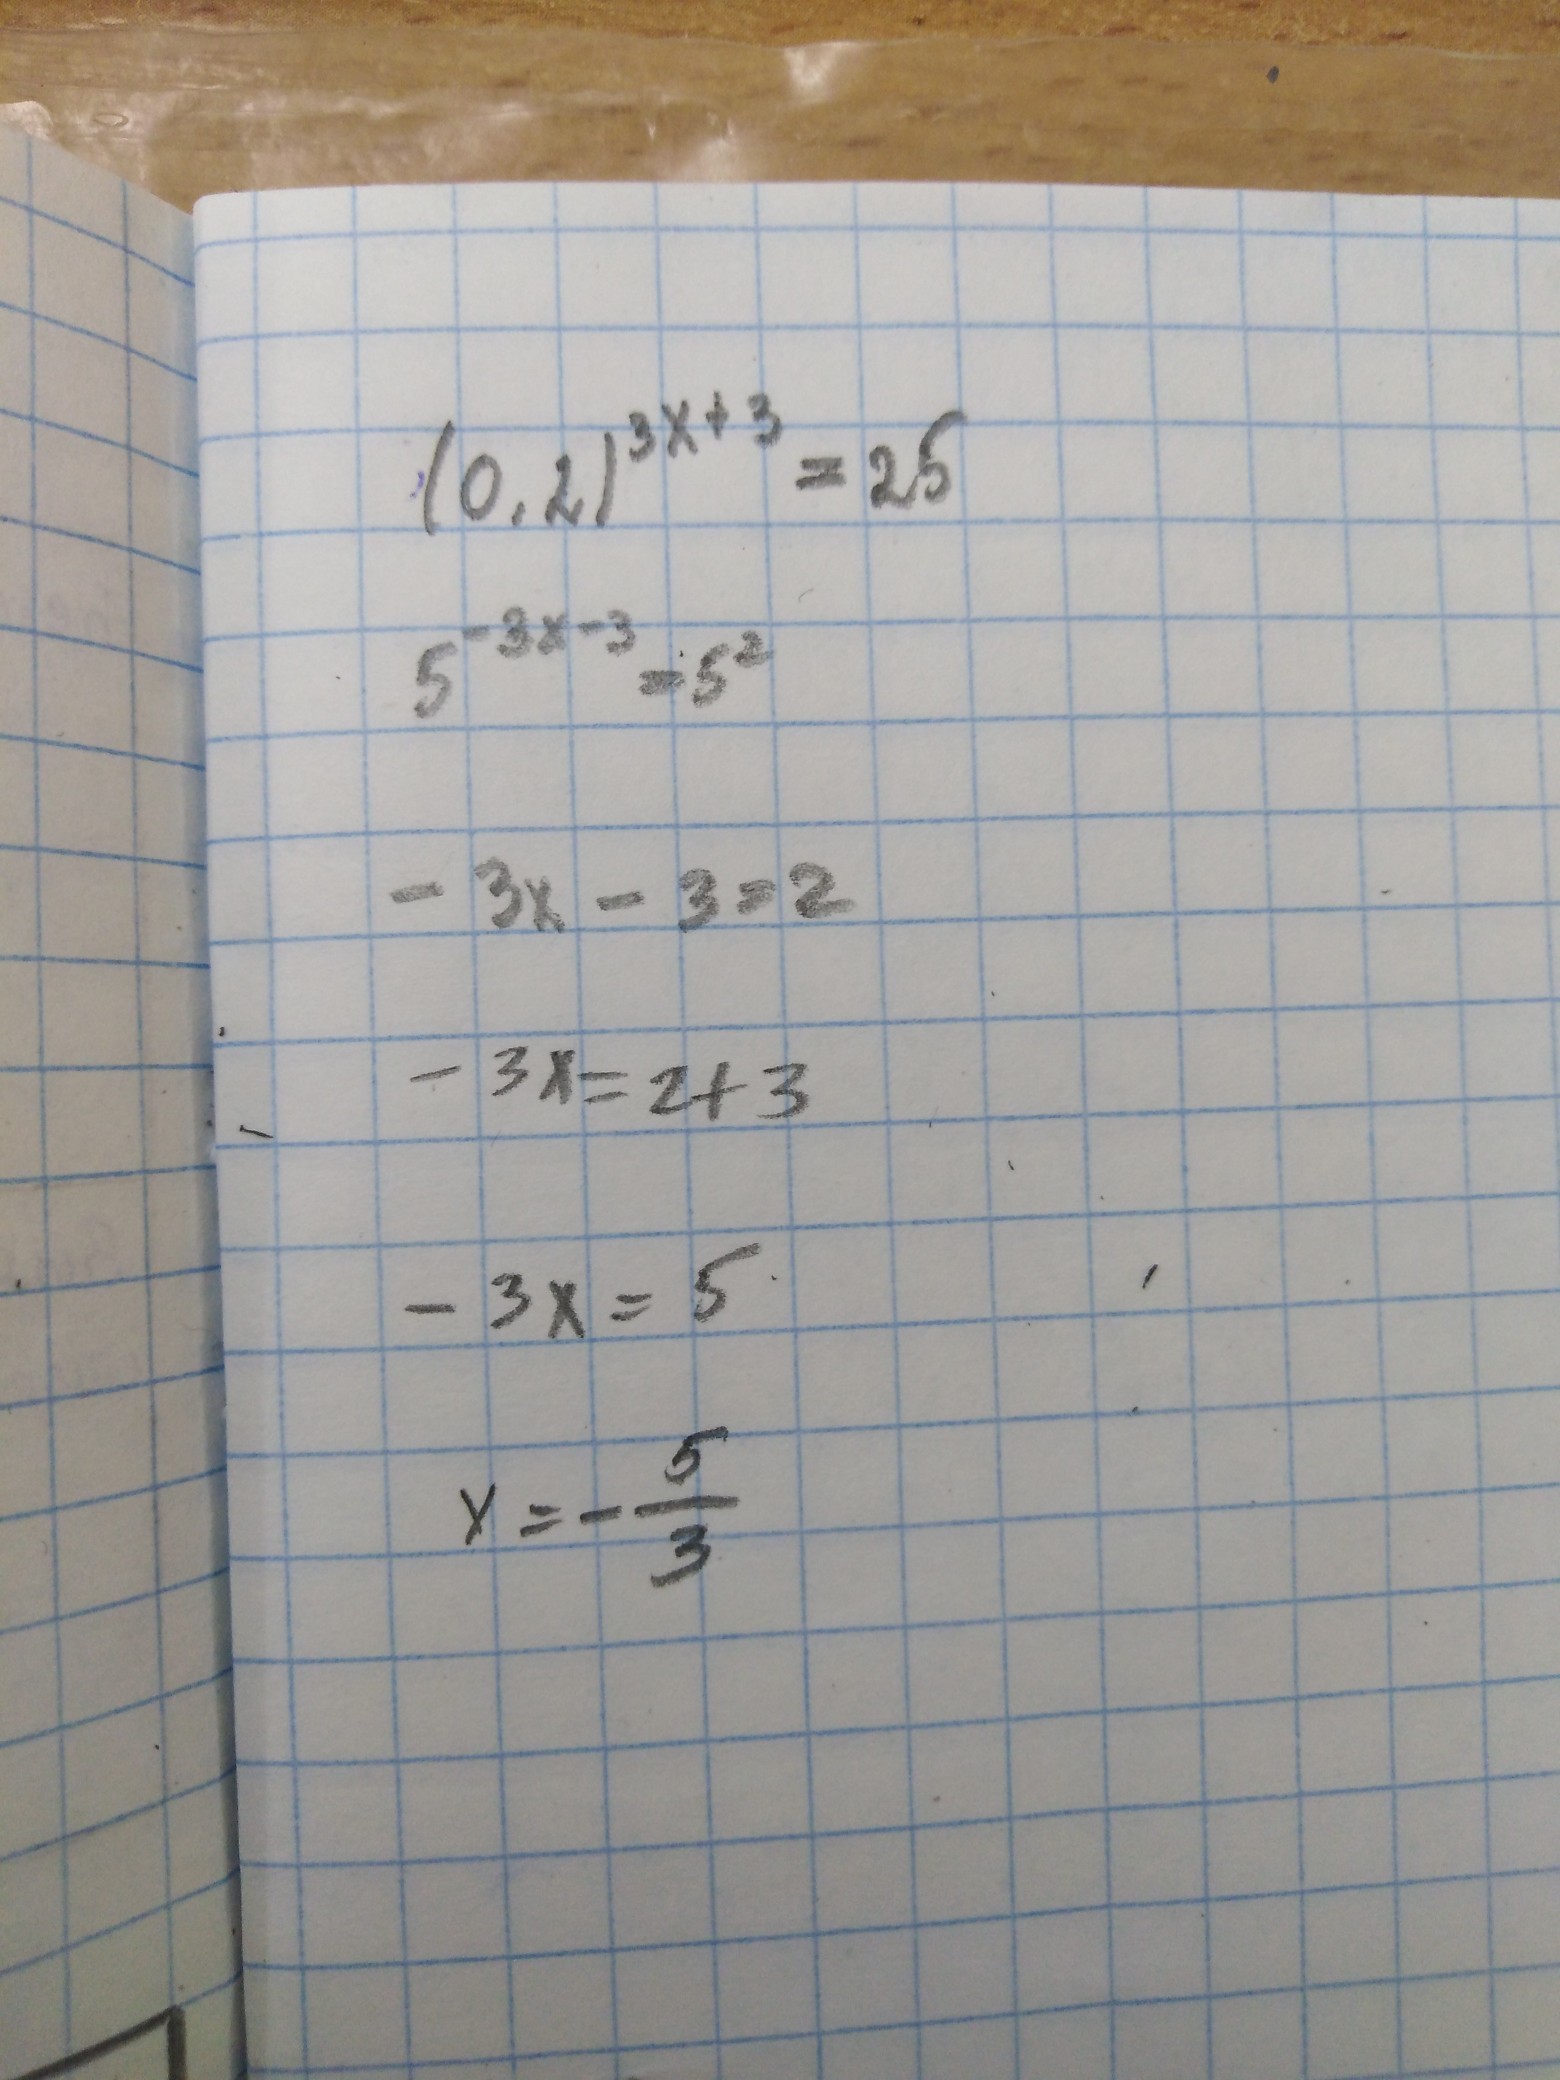 (0,2)^{3x+3} = 25
5^{-3x-3} = 5^2
- 3x - 3 = 2
- 3x = 2+3
- 3x = 5
x = - \frac{5}{3}